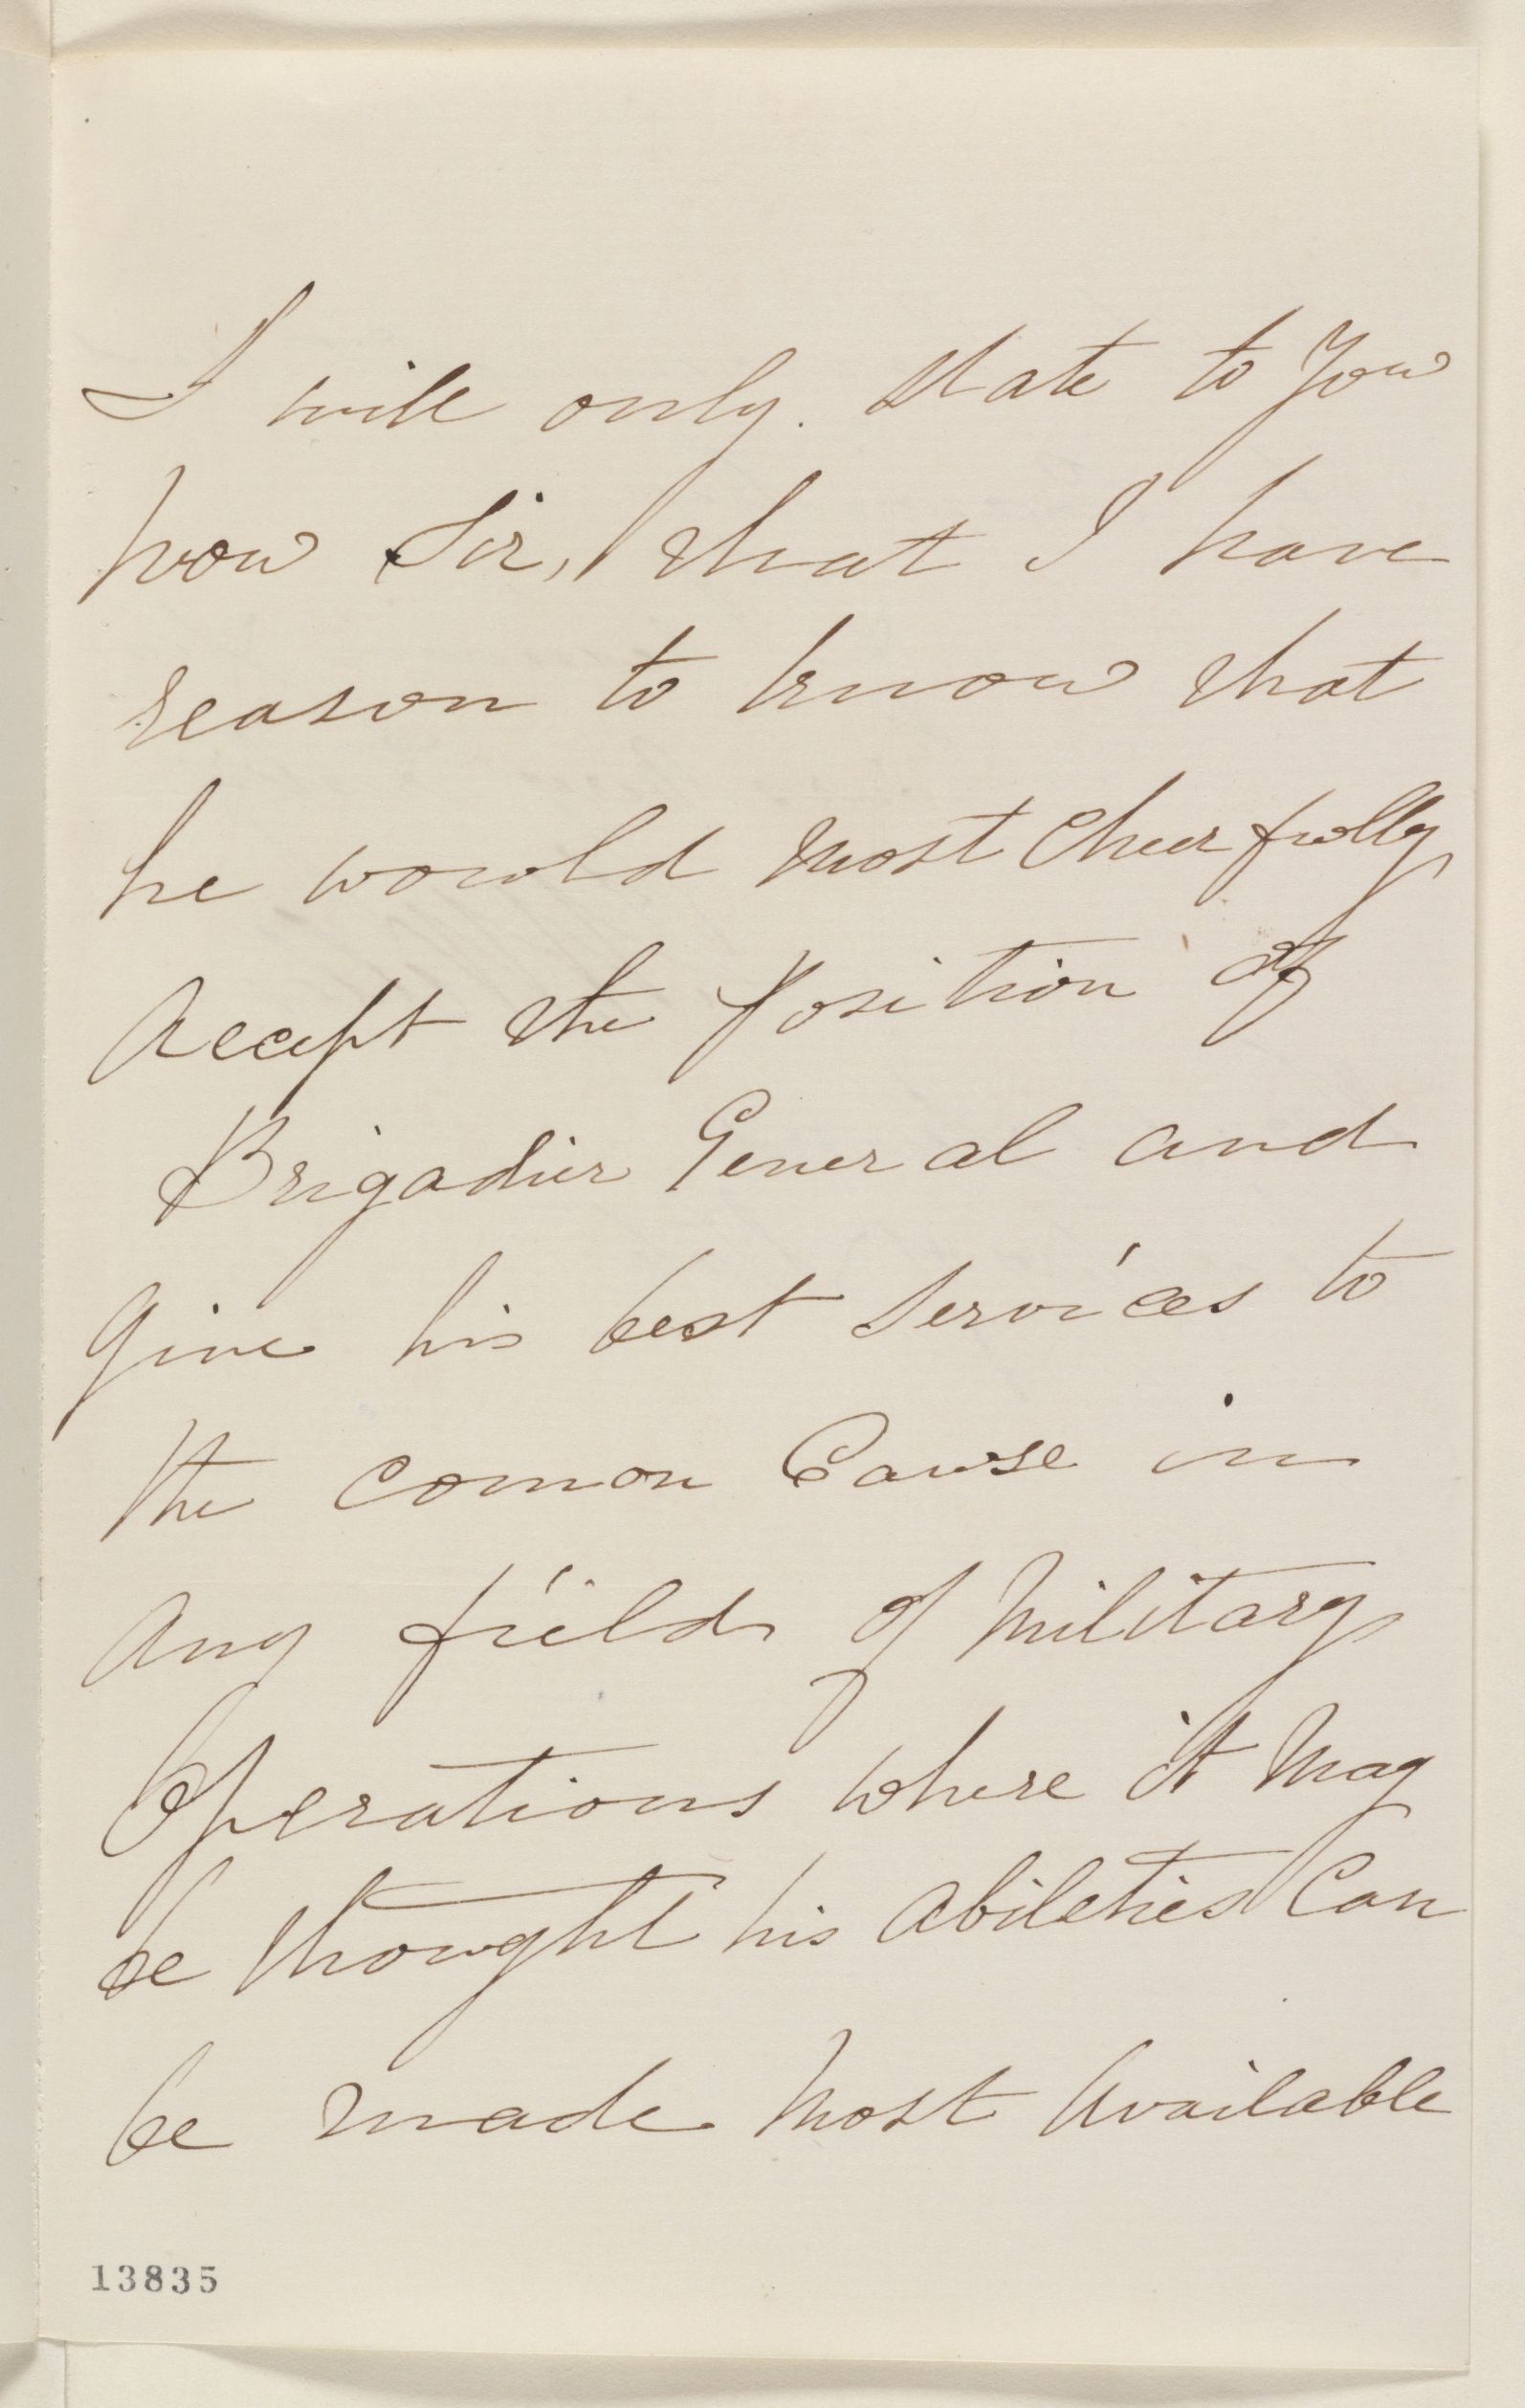 I will only state to you
now Sir, that I have
reason to know that
he would most cheerfully
accept the position of
Brigadier General and
give his best services to
the comon Cause in
any field of Military
Operations where it may
be thought his abilities Can
be made most Available
13835